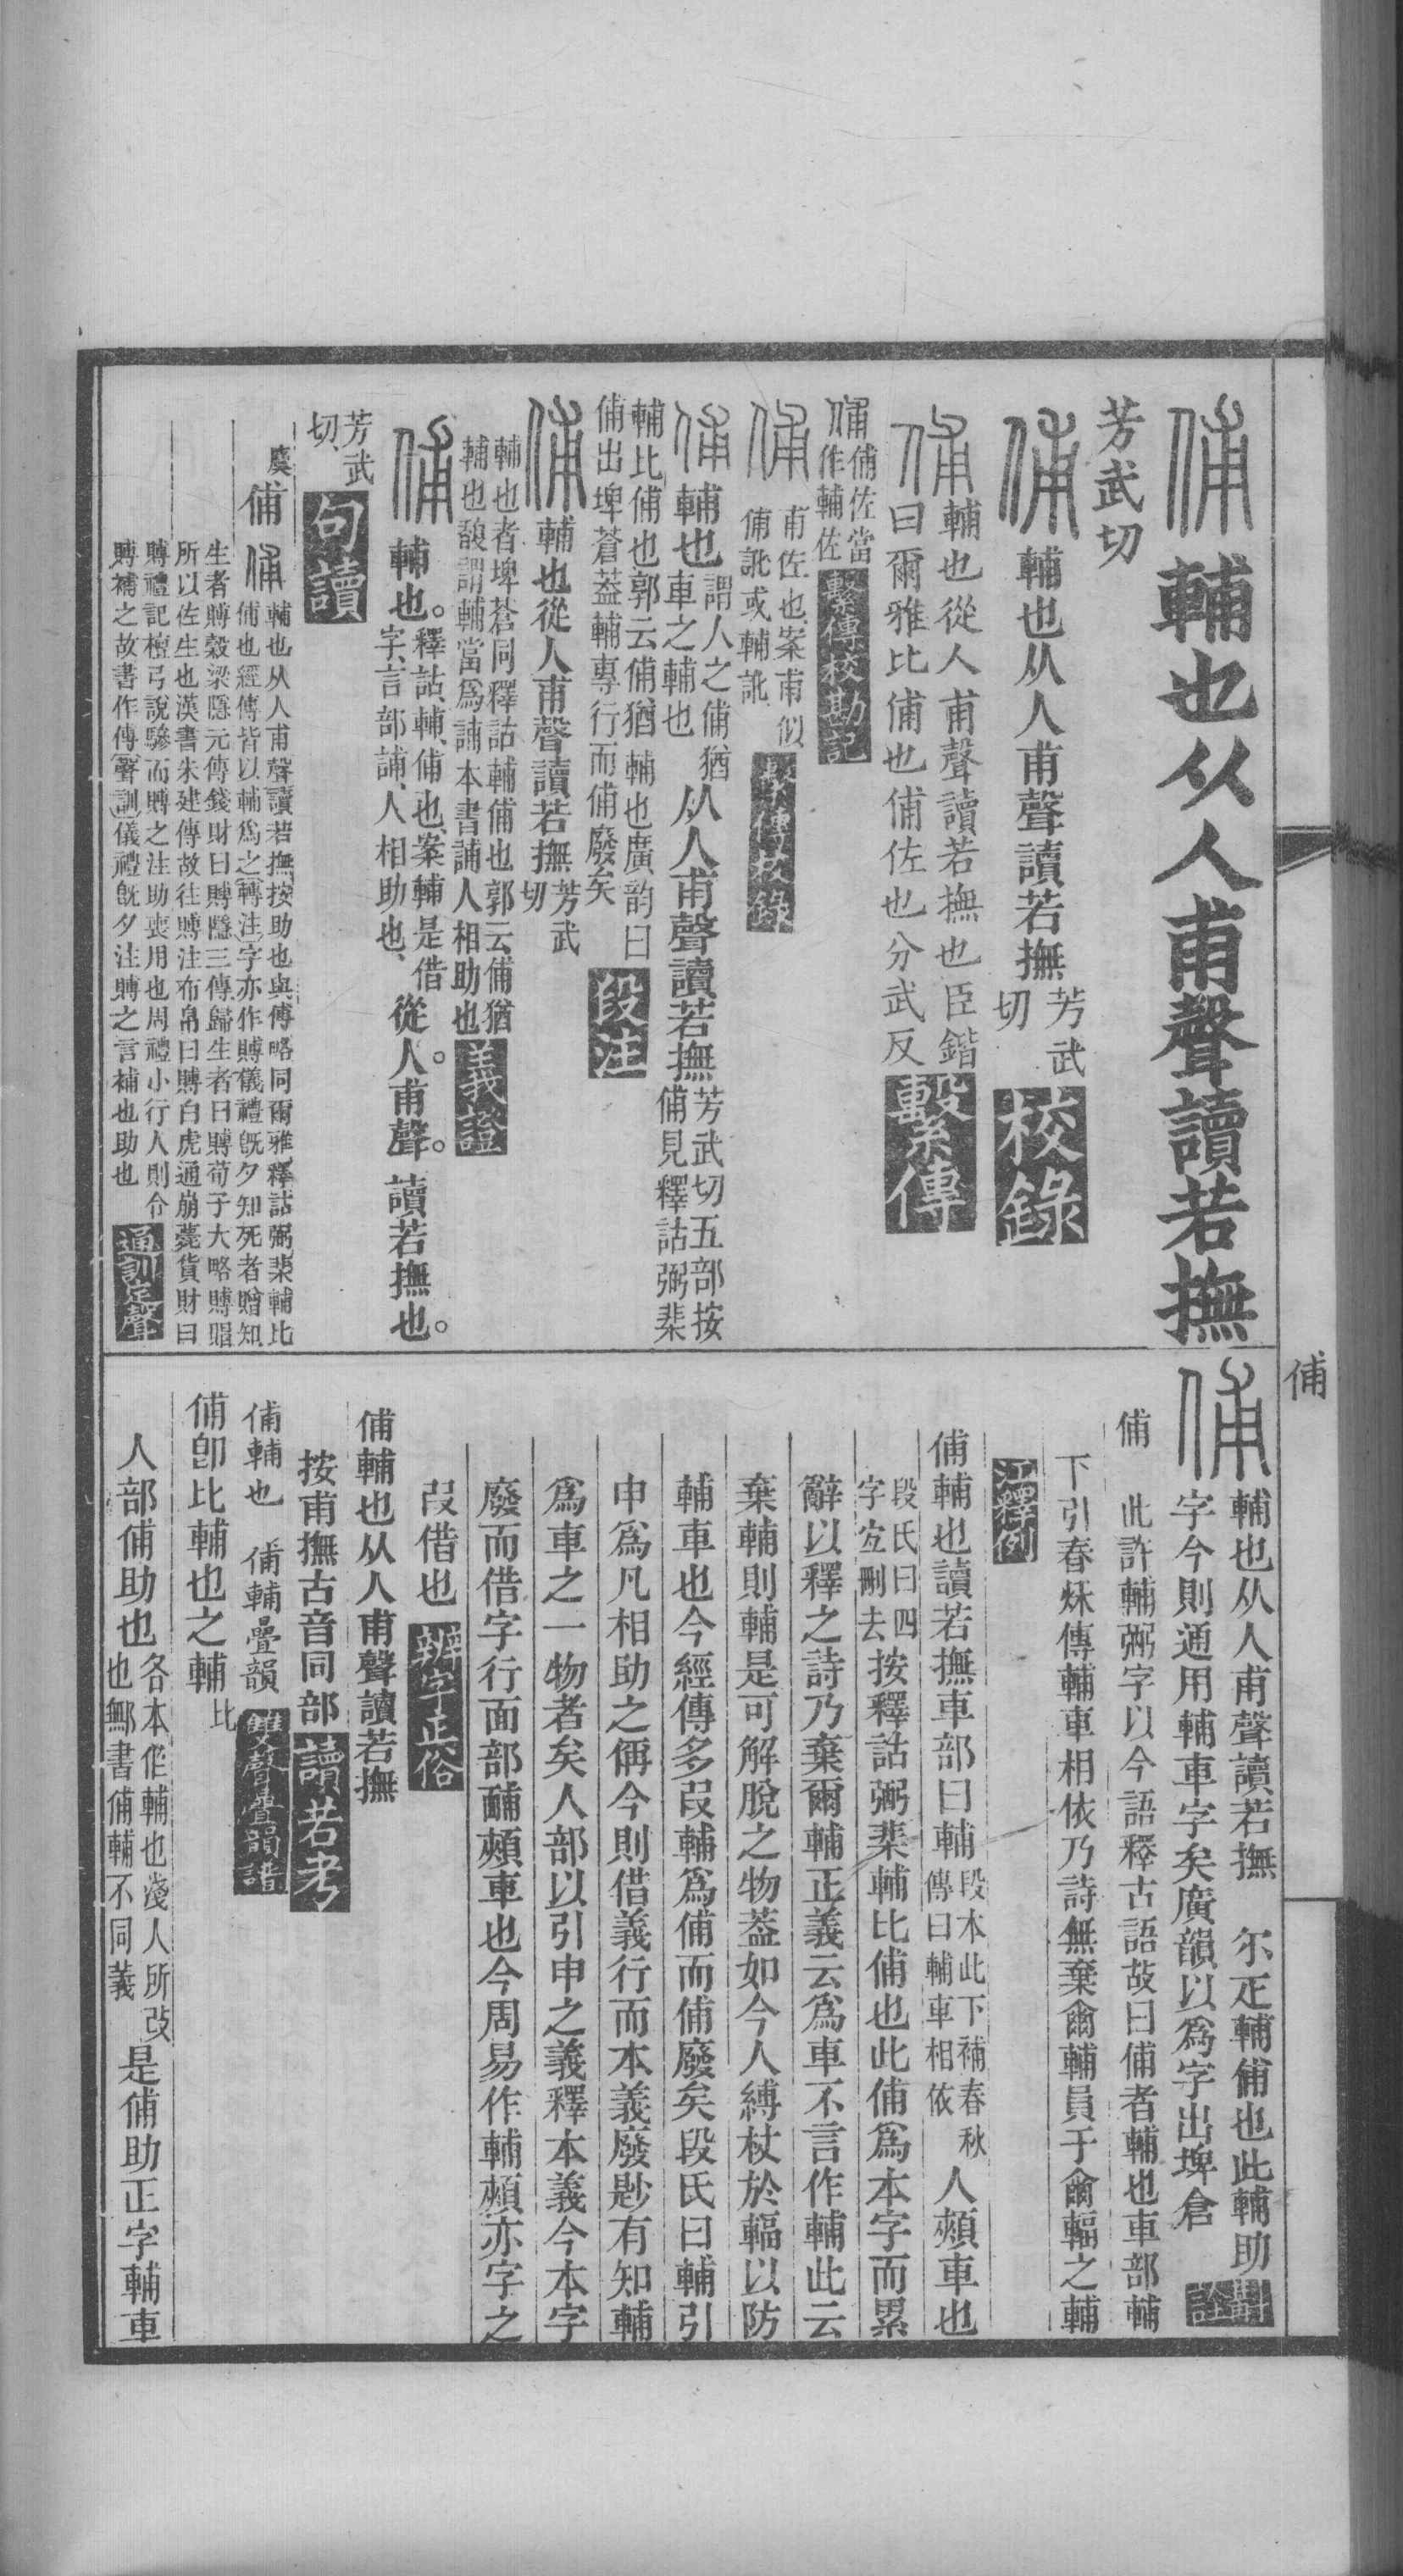 俌
俌 輔也从人甫聲讀若撫
芳武切
俌 輔也从人甫聲讀若撫 芳武
切
校錄
俌 輔也從人甫聲讀若撫也臣鍇
曰爾雅比俌也俌佐也分武反
繫傳
俌 俌佐當
作輔佐
繫傳校勘記
俌 甫佐也案甫似
俌訛或輔訛
俌 輔也 謂人之俌猶
車之輔也
从人甫聲讀若撫 芳武切五部按
俌見釋詁弼棐
輔比俌也郭云俌猶輔也廣韵曰
俌出埤蒼葢輔專行而俌廢矣
段注
俌 輔也從人甫聲讀若撫 芳武
切
輔也者埤蒼同釋詁輔俌也郭云俌猶
輔也馥謂輔當爲誧本書誧人相助也
義證
俌 輔也。釋詁、輔、俌也、案輔是借
字、言部誧、人相助也、
從人。甫聲。讀若撫也。
芳武
切、
句讀
虞俌
俌 輔也从人甫聲讀若撫按助也與傅略同爾雅釋詁弼棐輔比
俌也經傳皆以輔爲之轉注字亦作賻儀禮旣夕知死者贈知
生者賻穀梁隱元傳錢財曰賻隱三傳歸生者曰賻荀子大略賻賵
所以佐生也漢書朱建傳故往賻注布帛曰賻白虎通崩薨貨財曰
賻禮記檀弓說驂而賻之注助喪用也周禮小行人則令
賻補之故書作傅聲訓儀禮旣夕注賻之言補也助也
通訓定聲
俌 輔也从人甫聲讀若撫 尒疋輔俌也此輔助
字今則通用輔車字矣廣韻以爲字出埤倉
俌 此許輔弼字以今語釋古語故曰俌者輔也車部輔
下引春秌傳輔車相依乃詩無棄爾輔員于爾輻之輔
江釋例
俌輔也讀若撫車部曰輔 段本此下補春秋
傳曰輔車相依
人頰車也
段氏曰四
字宐刪去
按釋詁弼棐輔比俌也此俌爲本字而累
辭以釋之詩乃棄爾輔正義云爲車不言作輔此云
棄輔則輔是可解脫之物葢如今人縛杖於輻以防
輔車也今經傳多叚輔爲俌而俌廢矣段氏曰輔引
申爲凡相助之偁今則借義行而本義廢尟有知輔
爲車之一物者矣人部以引申之義釋本義今本字
廢而借字行面部䩉頰車也今周易作輔頰亦字之
叚借也
辨字正俗
俌輔也从人甫聲讀若撫
按甫撫古音同部
讀若考
俌輔也 俌輔疊韻
雙聲疊韻譜
俌卽比輔也之輔 比
人部俌助也 各本作輔也淺人所改
也鄦書俌輔不同義
是俌助正字輔車